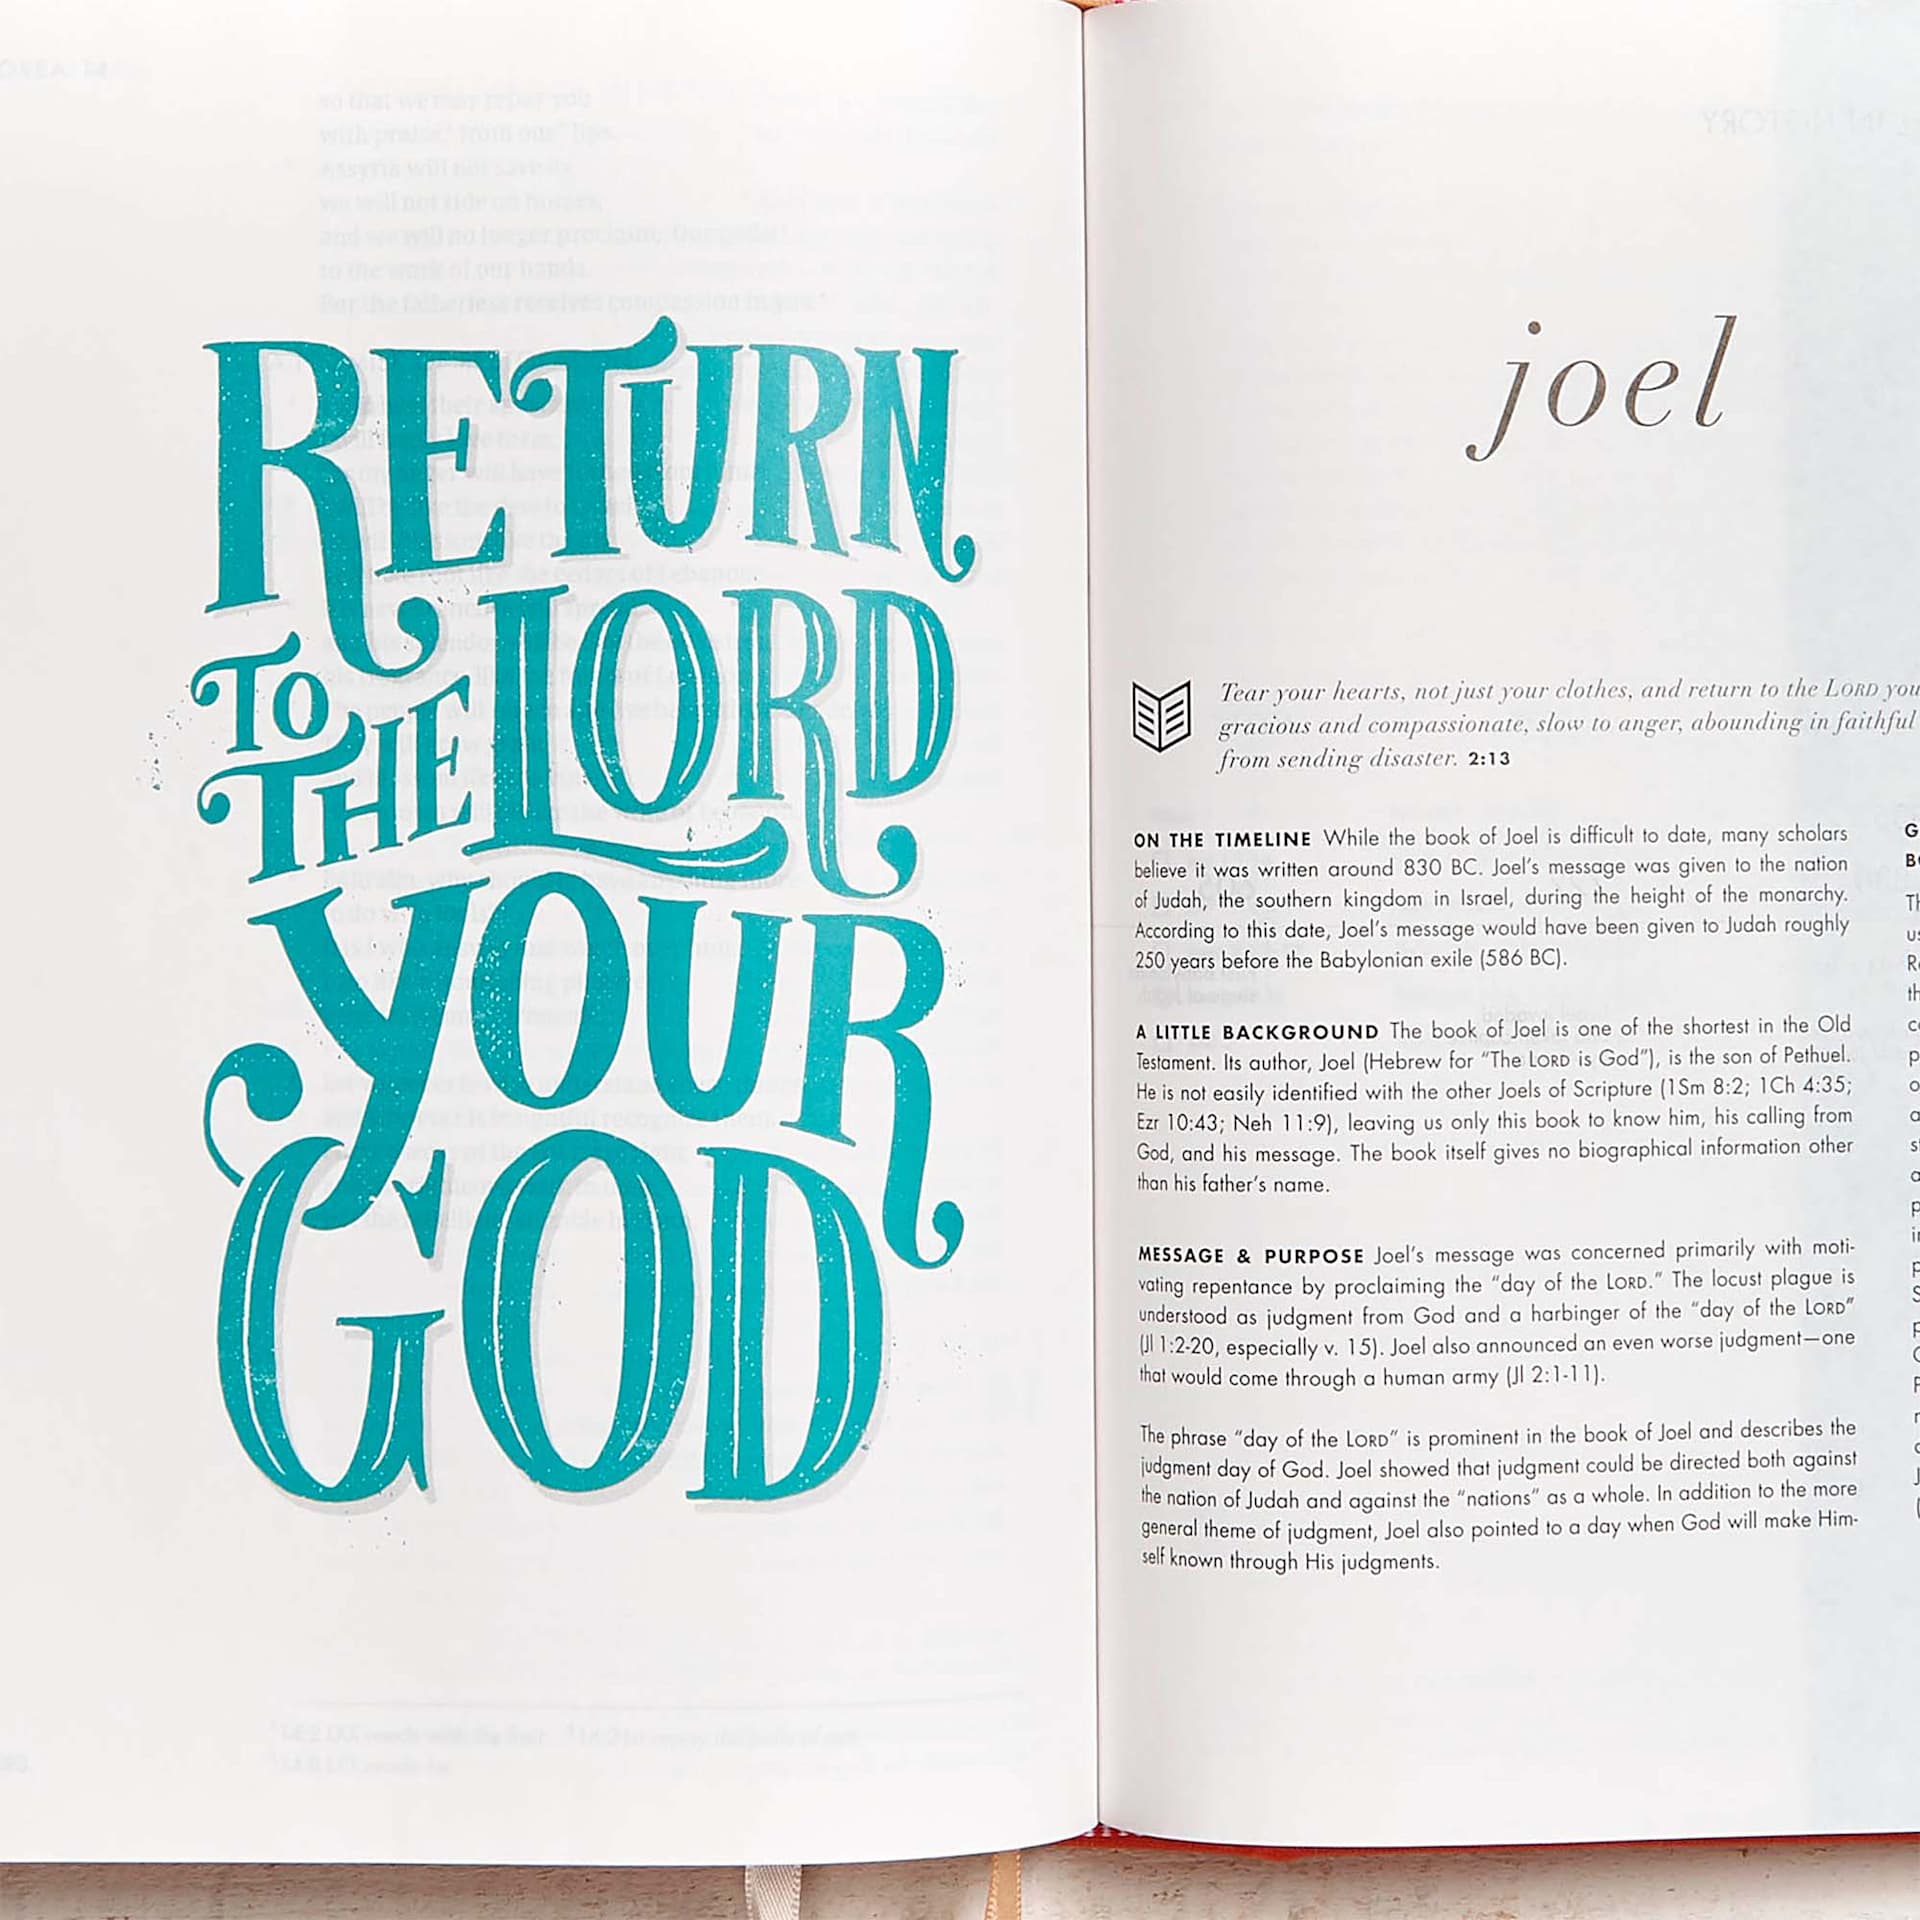 RETURN
TO THE LORD
YOUR
GOD
joel
Tear your hearts, not just your clothes, and return to the LORD
gracious and compassionate, slow to anger, abounding in
from sending disaster. 2:13
ON THE TIMELINE While the book of Joel is difficult to date, many scholars
believe it was written around 830 BC. Joel's message was given to the nation
of Judah, the southern kingdom in Israel, during the height of the monarchy.
According to this date, Joel's message would have been given to Judah roughly
250 years before the Babylonian exile (586 BC).
A LITTLE BACKGROUND The book of Joel is one of the shortest in the Old
Testament. Its author, Joel (Hebrew for “The LORD is God”), is the son of Pethuel.
He is not easily identified with the other Joels of Scripture (1Sm 8:2; 1Ch 4:35;
Ezr 10:43; Neh 11:9), leaving us only this book to know him, his calling from
God, and his message. The book itself gives no biographical information other
than his father's name.
MESSAGE & PURPOSE Joel's message was concerned primarily with moti-
vating repentance by proclaiming the “day of the LORD.” The locust plague is
understood as judgment from God and a harbinger of the “day of the LORD”
(Jl 1:2-20, especially v. 15). Joel also announced an even worse judgment—one
that would come through a human army (Jl 2:1-11).
The phrase “day of the LORD” is prominent in the book of Joel and describes the
judgment day of God. Joel showed that judgment could be directed both against
the nation of Judah and against the “nations” as a whole. In addition to the more
general theme of judgment, Joel also pointed to a day when God will make Him-
self known through His judgments.